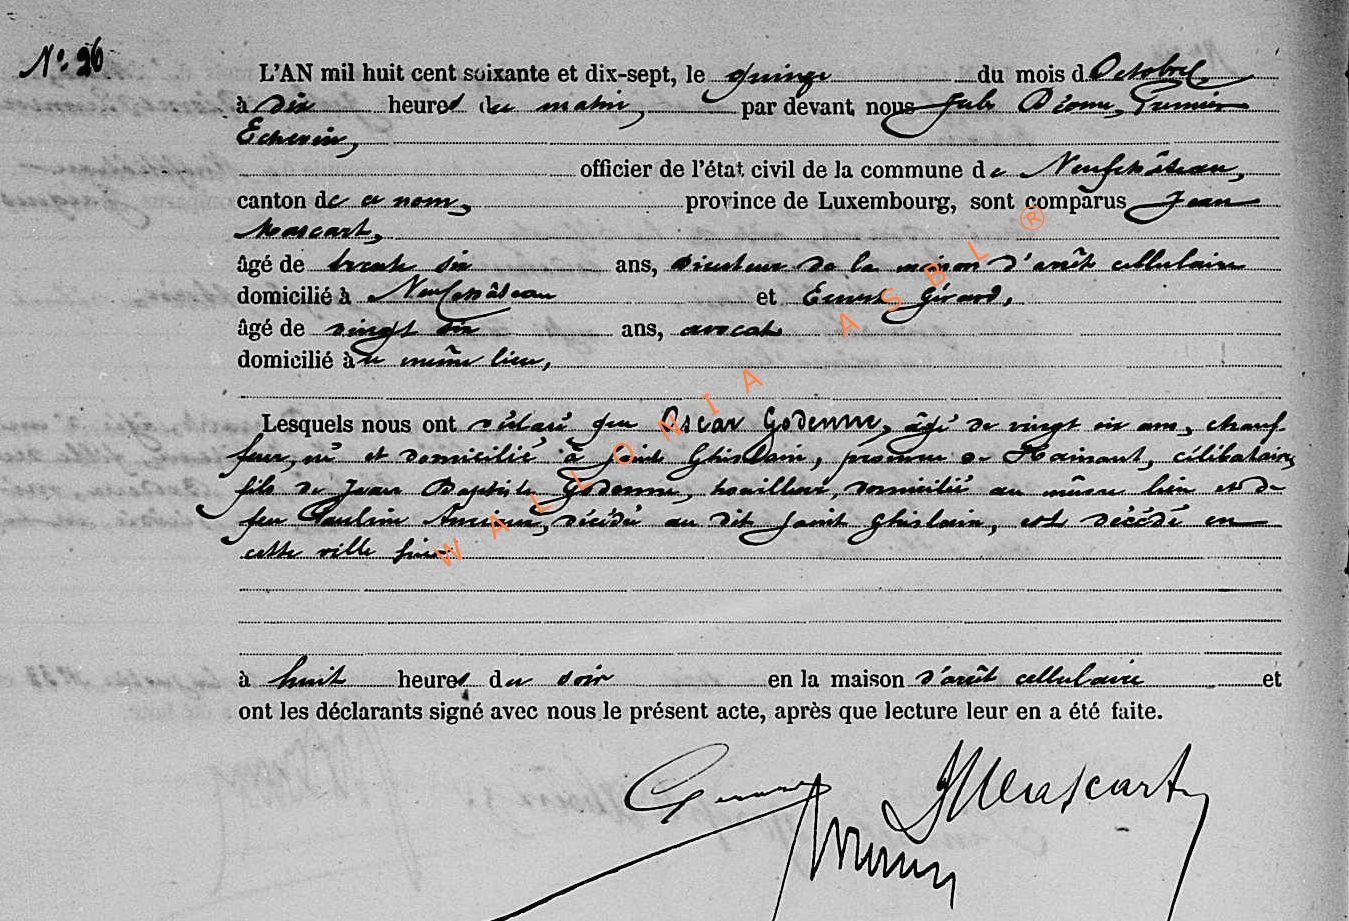 N° 26
L'AN mil huit cent soixante et dix-sept, le quinze du mois d'Octobre,
à dix heures du matin, par devant nous Jules Premier
Echevin,
officier de l'état civil de la commune de Neufchâteau,
canton de ce nom, province de Luxembourg, sont comparus Jean
Mascart,
âgé de trente six ans, directeur de la maison d'arrêt cellulaire
domicilié à Neufchâteau et Ernest Gérard,
âgé de vingt six ans, avocat
domicilié à même lieu,
Lesquels nous ont déclaré que Oscar Godenne, âgé de vingt six ans, chauf-
feur, né et domicilié à Saint Ghislain, province de Hainaut, célibataire,
fils de Jean Baptiste Godenne, houilleur, domicilié au même lieu et de
feu Pauline décédée au dit Saint Ghislain, est décédé en
cette ville hier
à huit heures du soir en la maison d'arrêt cellulaire et
ont les déclarants signé avec nous le présent acte, après que lecture leur en a été faite.
Gérard
JMascart
WALLONIA ASBL ®